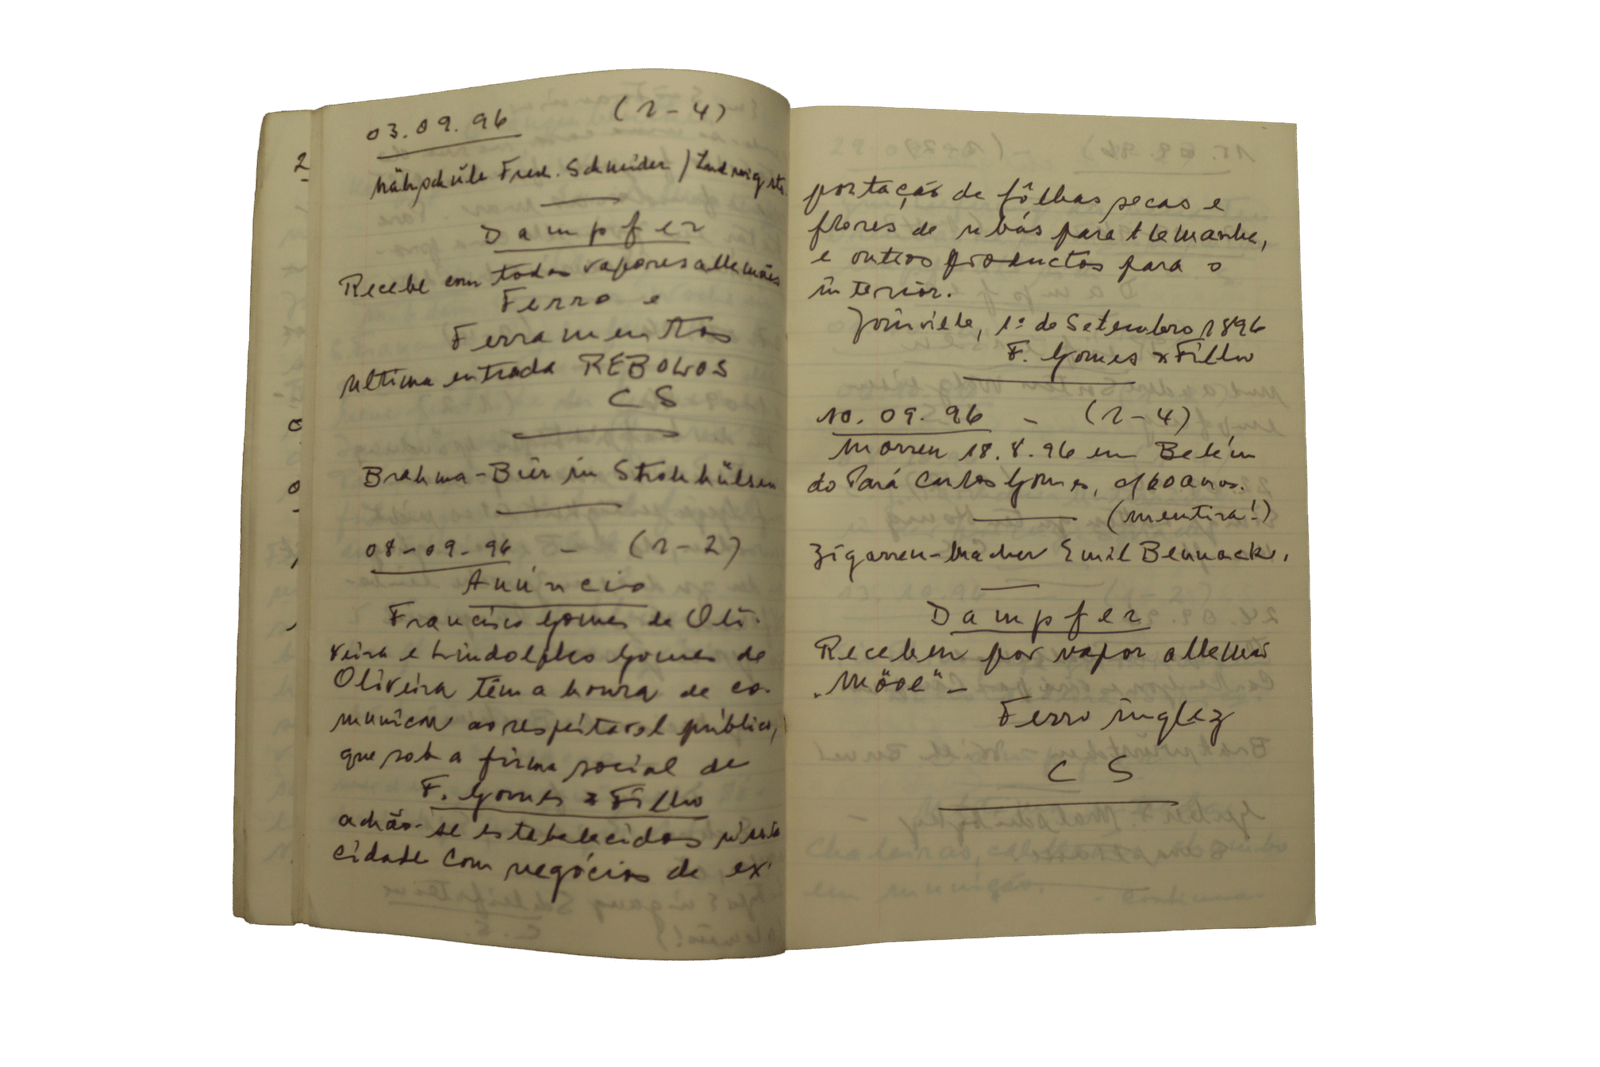 03.09.96 (1-4)
Nähschule Fred. Schneider / Ludwigstr.
Dampfer
Recebe com todos vapores allemães
Ferro e
Ferramentas
ultima entrada REBOLOS
C S
Brahma-Bier in Strohhülsen
08-09-96 - (1-2)
Anúncio
Francisco Gomes de Oli-
veira e Lindolpho Gomes de
Oliveira têm a honra de co-
municar ao respeitavel público,
que sob a firma social de
F. Gomes & Filho
achão-se estabelecidos n'esta
cidade com negócios de ex-
portação de fôlhas secas e
flores de ubás para Alemanha,
e outros productos para o
interior.
Joinville, 1º de Setembro 1896
F. Gomes & Filho
10.09.96 - (1-4)
Morreu 18.8.96 em Belém
do Pará Carlos Gomes, c/60 anos.
(mentira!)
Zigarren-macher Emil Bennack.
Dampfer
Recebem por vapor allemão
„Möwe" -
Ferro inglez
C S